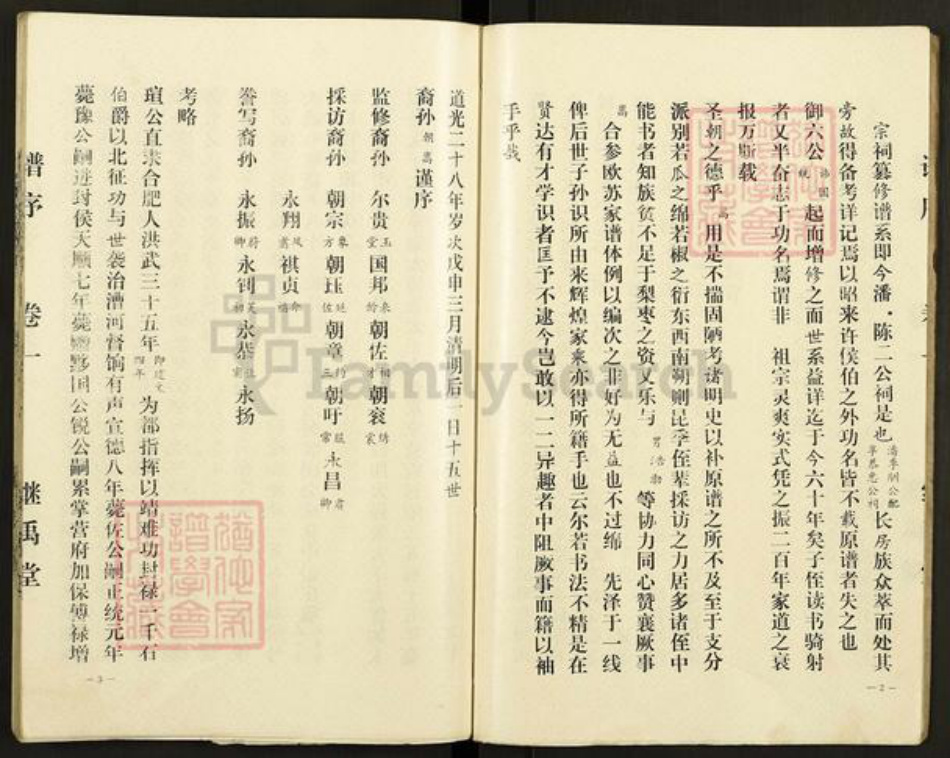 宗祠纂修谱系即今潘·陈二公祠是也 长房族众萃而处其
旁故得备考详记焉以昭来许侯伯之外功名皆不载原谱者失之也
御六公 起而增修之而世系益详迄于今六十年矣子侄读书骑射
者又半奋志于功名焉谓非 祖宗灵爽实式凭之振二百年家道之衰
报万斯载
圣朝之德乎 高 用是不揣固陋考诸明史以补原谱之所不及至于支分
派别若瓜之绵若椒之衍东西南朔则昆季侄辈採访之力居多诸侄中
能书者知族贫不足于梨枣之资又乐与 等协力同心赞襄厥事
高 合参欧苏家谱体例以编次之非好为无益也不过绵 先泽于一线
俾后世子孙识所由来辉煌家乘亦得所籍手也云尔若书法不精是在
贤达有才学识者匡予不逮今岂敢以一二异趣者中阻厥事而籍以袖
手乎哉
— 2 —
道光二十八年岁次戊申三月清明后一日十五世
裔孙 朝高 谨序
监修裔孙 尔贵 国邦 朝佐 朝衮
採访裔孙 朝宗 朝珏 朝章 朝吁 永昌
永翔 祺贞
誊写裔孙 永振 永钊 永恭 永扬
考略
瑄公直隶合肥人洪武三十五年 即建文四年 为都指挥以靖难功封禄一千石
伯爵以北征功与世袭治漕河督饷有声宣德八年薨佐公嗣正统元年
薨豫公嗣进封侯天顺七年薨赠黟国公锐公嗣累掌营府加保傅禄增
— 3 —
谱序 卷一 继禹堂
FamilySearch